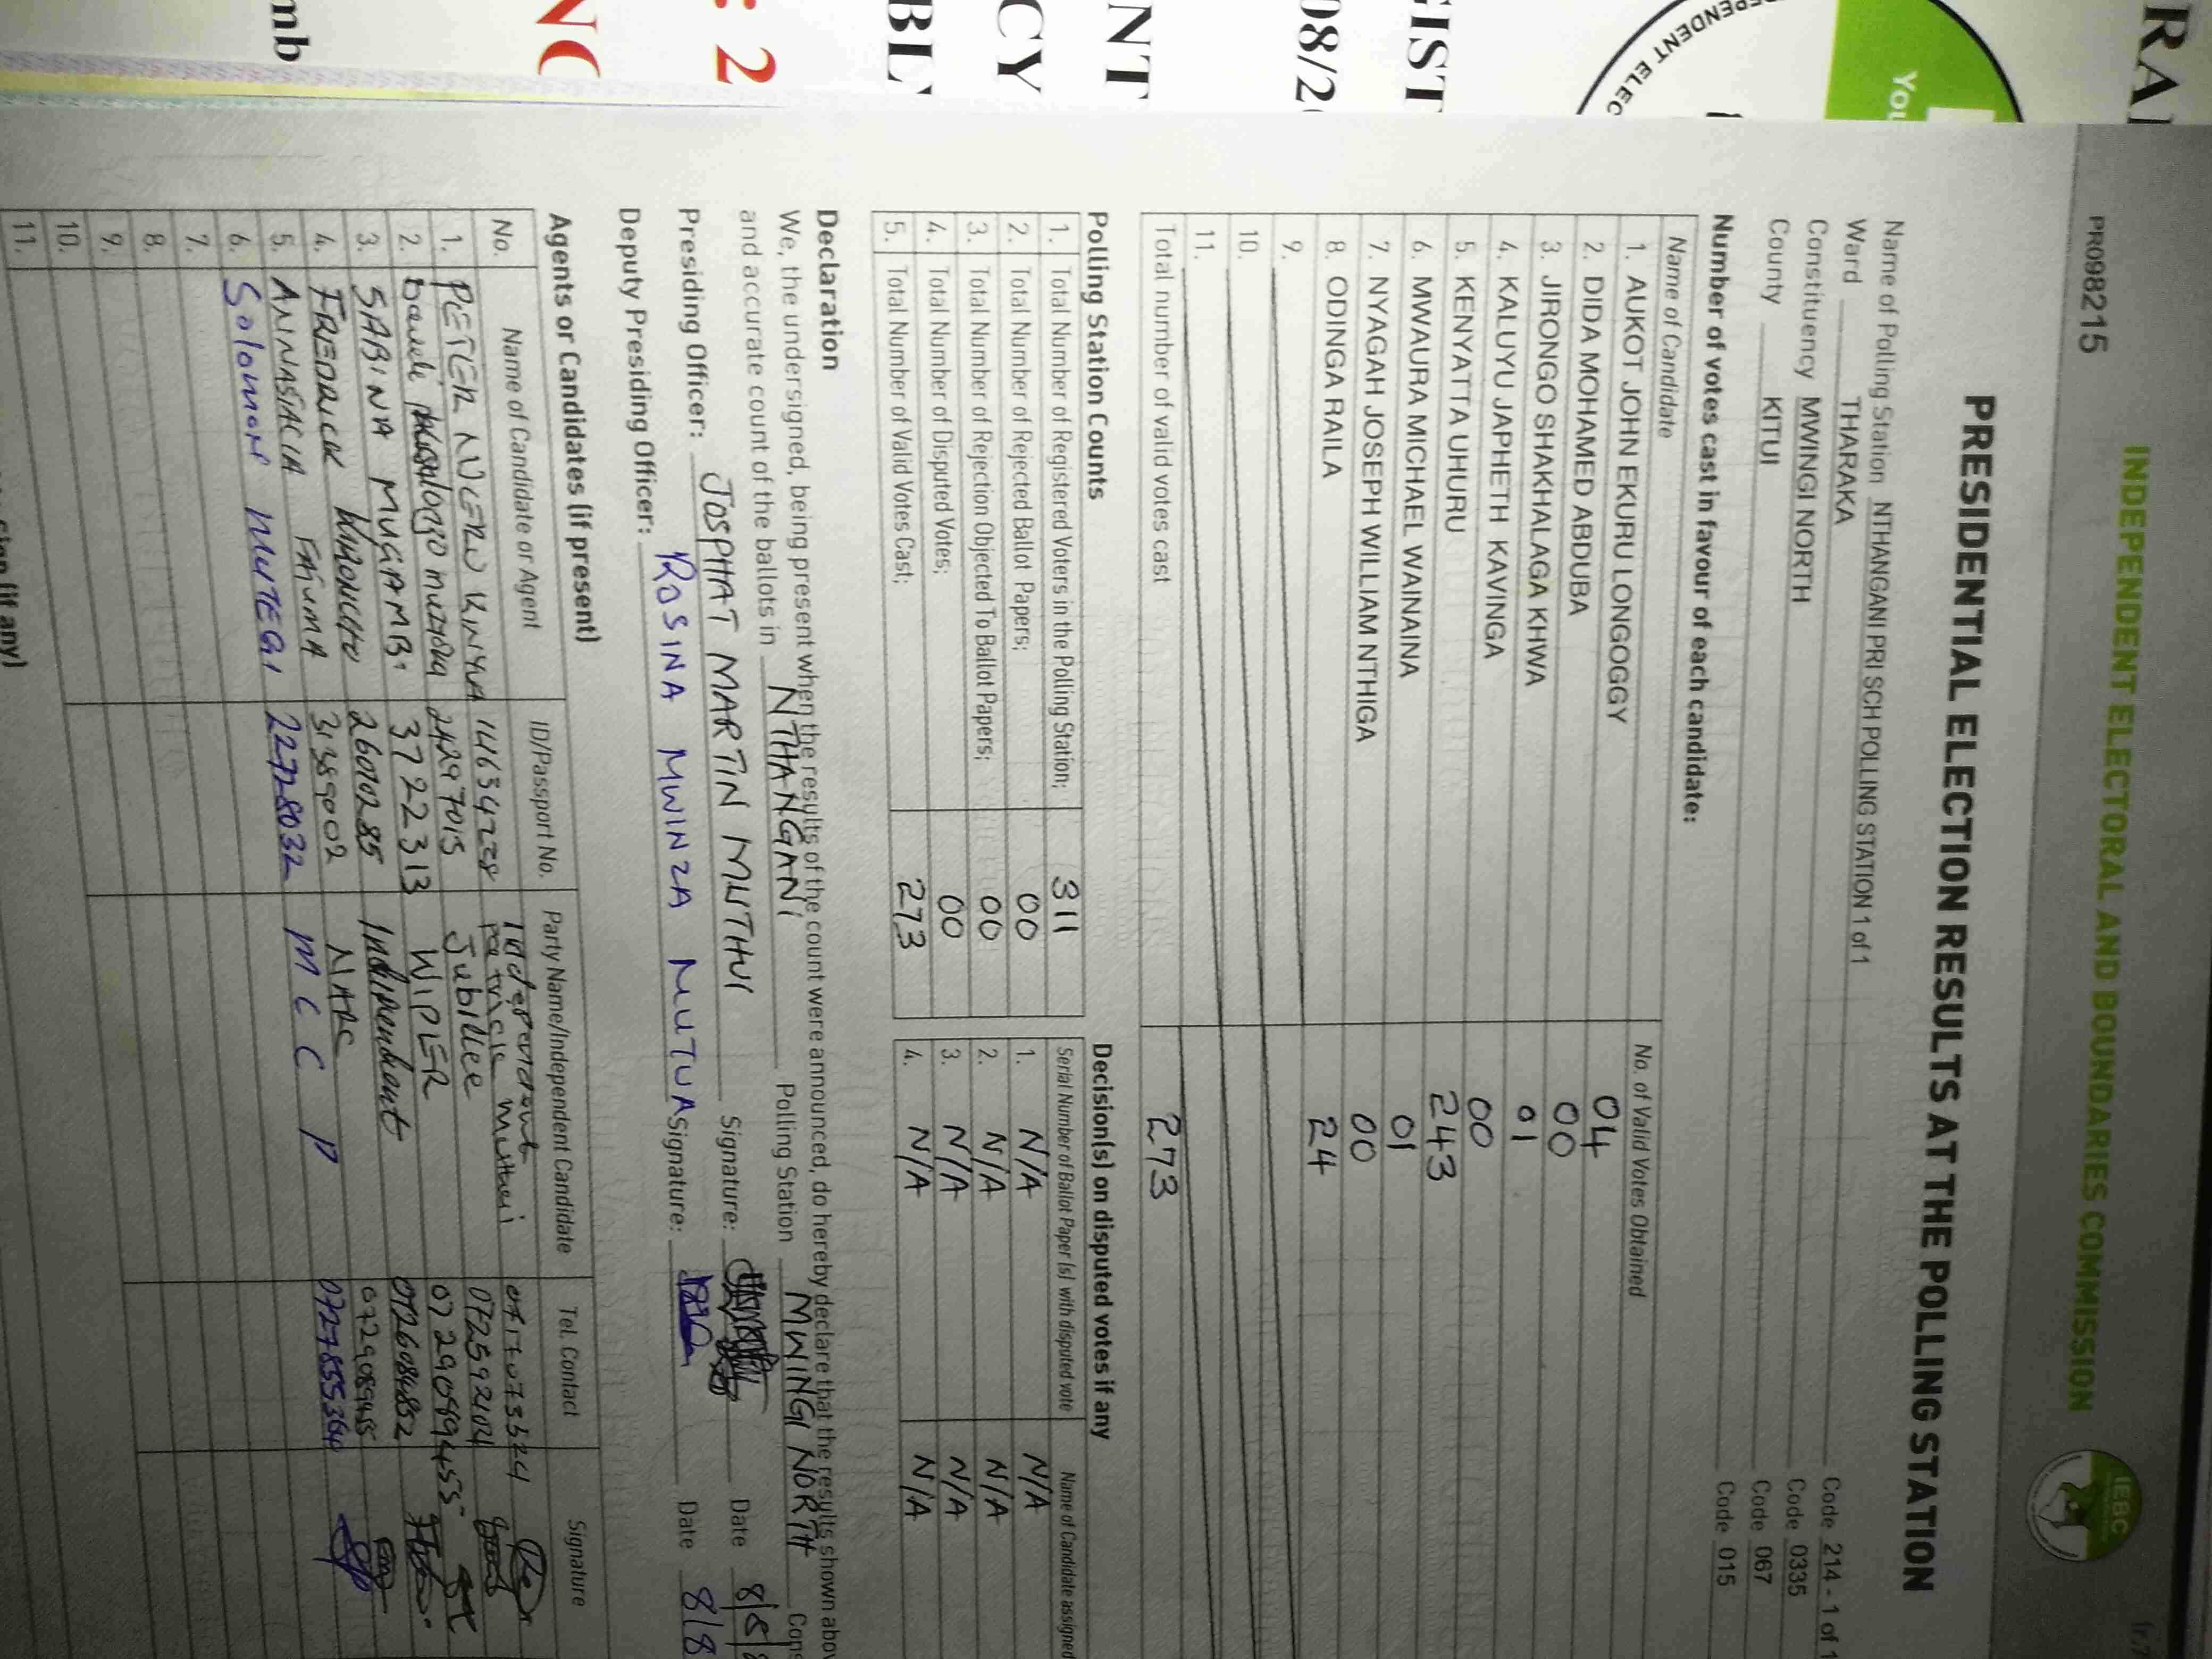 INDEPENDENT ELECTORAL AND BOUNDARIES COMMISSION
IEBC
PR098215
PRESIDENTIAL ELECTION RESULTS AT THE POLLING STATION
Name of Polling Station NTHANGANI PRI SCH POLLING STATION 1 of 1 Code 214 - 1 of 1
Ward THARAKA Code 0335
Constituency MWINGI NORTH Code 067
County KITUI Code 015
Number of votes cast in favour of each candidate:
Name of Candidate No. of Valid Votes Obtained
1. AUKOT JOHN EKURU LONGOGGY 04
2. DIDA MOHAMED ABDUBA 00
3. JIRONGO SHAKHALAGA KHWA 01
4. KALUYU JAPHETH KAVINGA 00
5. KENYATTA UHURU 243
6. MWAURA MICHAEL WAINAINA 01
7. NYAGAH JOSEPH WILLIAM NTHIGA 00
8. ODINGA RAILA 24
9.
10.
11.
Total number of valid votes cast 273
Polling Station Counts
1. Total Number of Registered Voters in the Polling Station; 311
2. Total Number of Rejected Ballot Papers; 00
3. Total Number of Rejection Objected To Ballot Papers; 00
4. Total Number of Disputed Votes; 00
5. Total Number of Valid Votes Cast; 273
Decision(s) on disputed votes if any
Serial Number of Ballot Paper (s) with disputed vote Name of Candidate assigned
1. N/A N/A
2. N/A N/A
3. N/A N/A
4. N/A N/A
Declaration
We, the undersigned, being present when the results of the count were announced, do hereby declare that the results shown abov
and accurate count of the ballots in NTHANGANI Polling Station MWINGI NORTH Cons
Presiding Officer: JOSPHAT MARTIN MUTHUI Signature: Date 8/8/
Deputy Presiding Officer: ROSINA MWINZA MUTUA Signature: Date 8/8
Agents or Candidates (if present)
No. Name of Candidate or Agent ID/Passport No. Party Name/Independent Candidate Tel. Contact Signature
1. PETER NJERU KINYUA 14634238 Independent patrick Muthui
2. 24297015 Jubilee 072592102
3. SABINA MUGAMBI 3722313 WIPER
4. FREDRICK 26010285 Indipendent 0726084852
5. ANNASIACIA FATUMA 31389002 NARC
6. Solomon MUTEGI 22728032 M C C P
7.
8.
9.
10.
11.
(if any)
RAL
You
ENDENT ELEC
GIST
08/2
NT
CY
BL
: 2
NC
mb